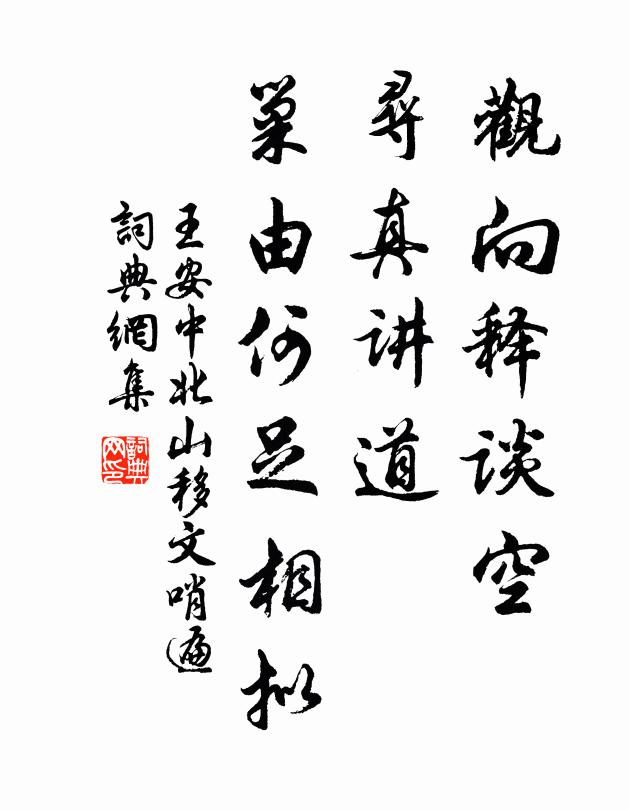 觀向释谈空
尋真讲道
巢由何足相拟
王安中北山移文哨遍
詞典網集
詞典
网印